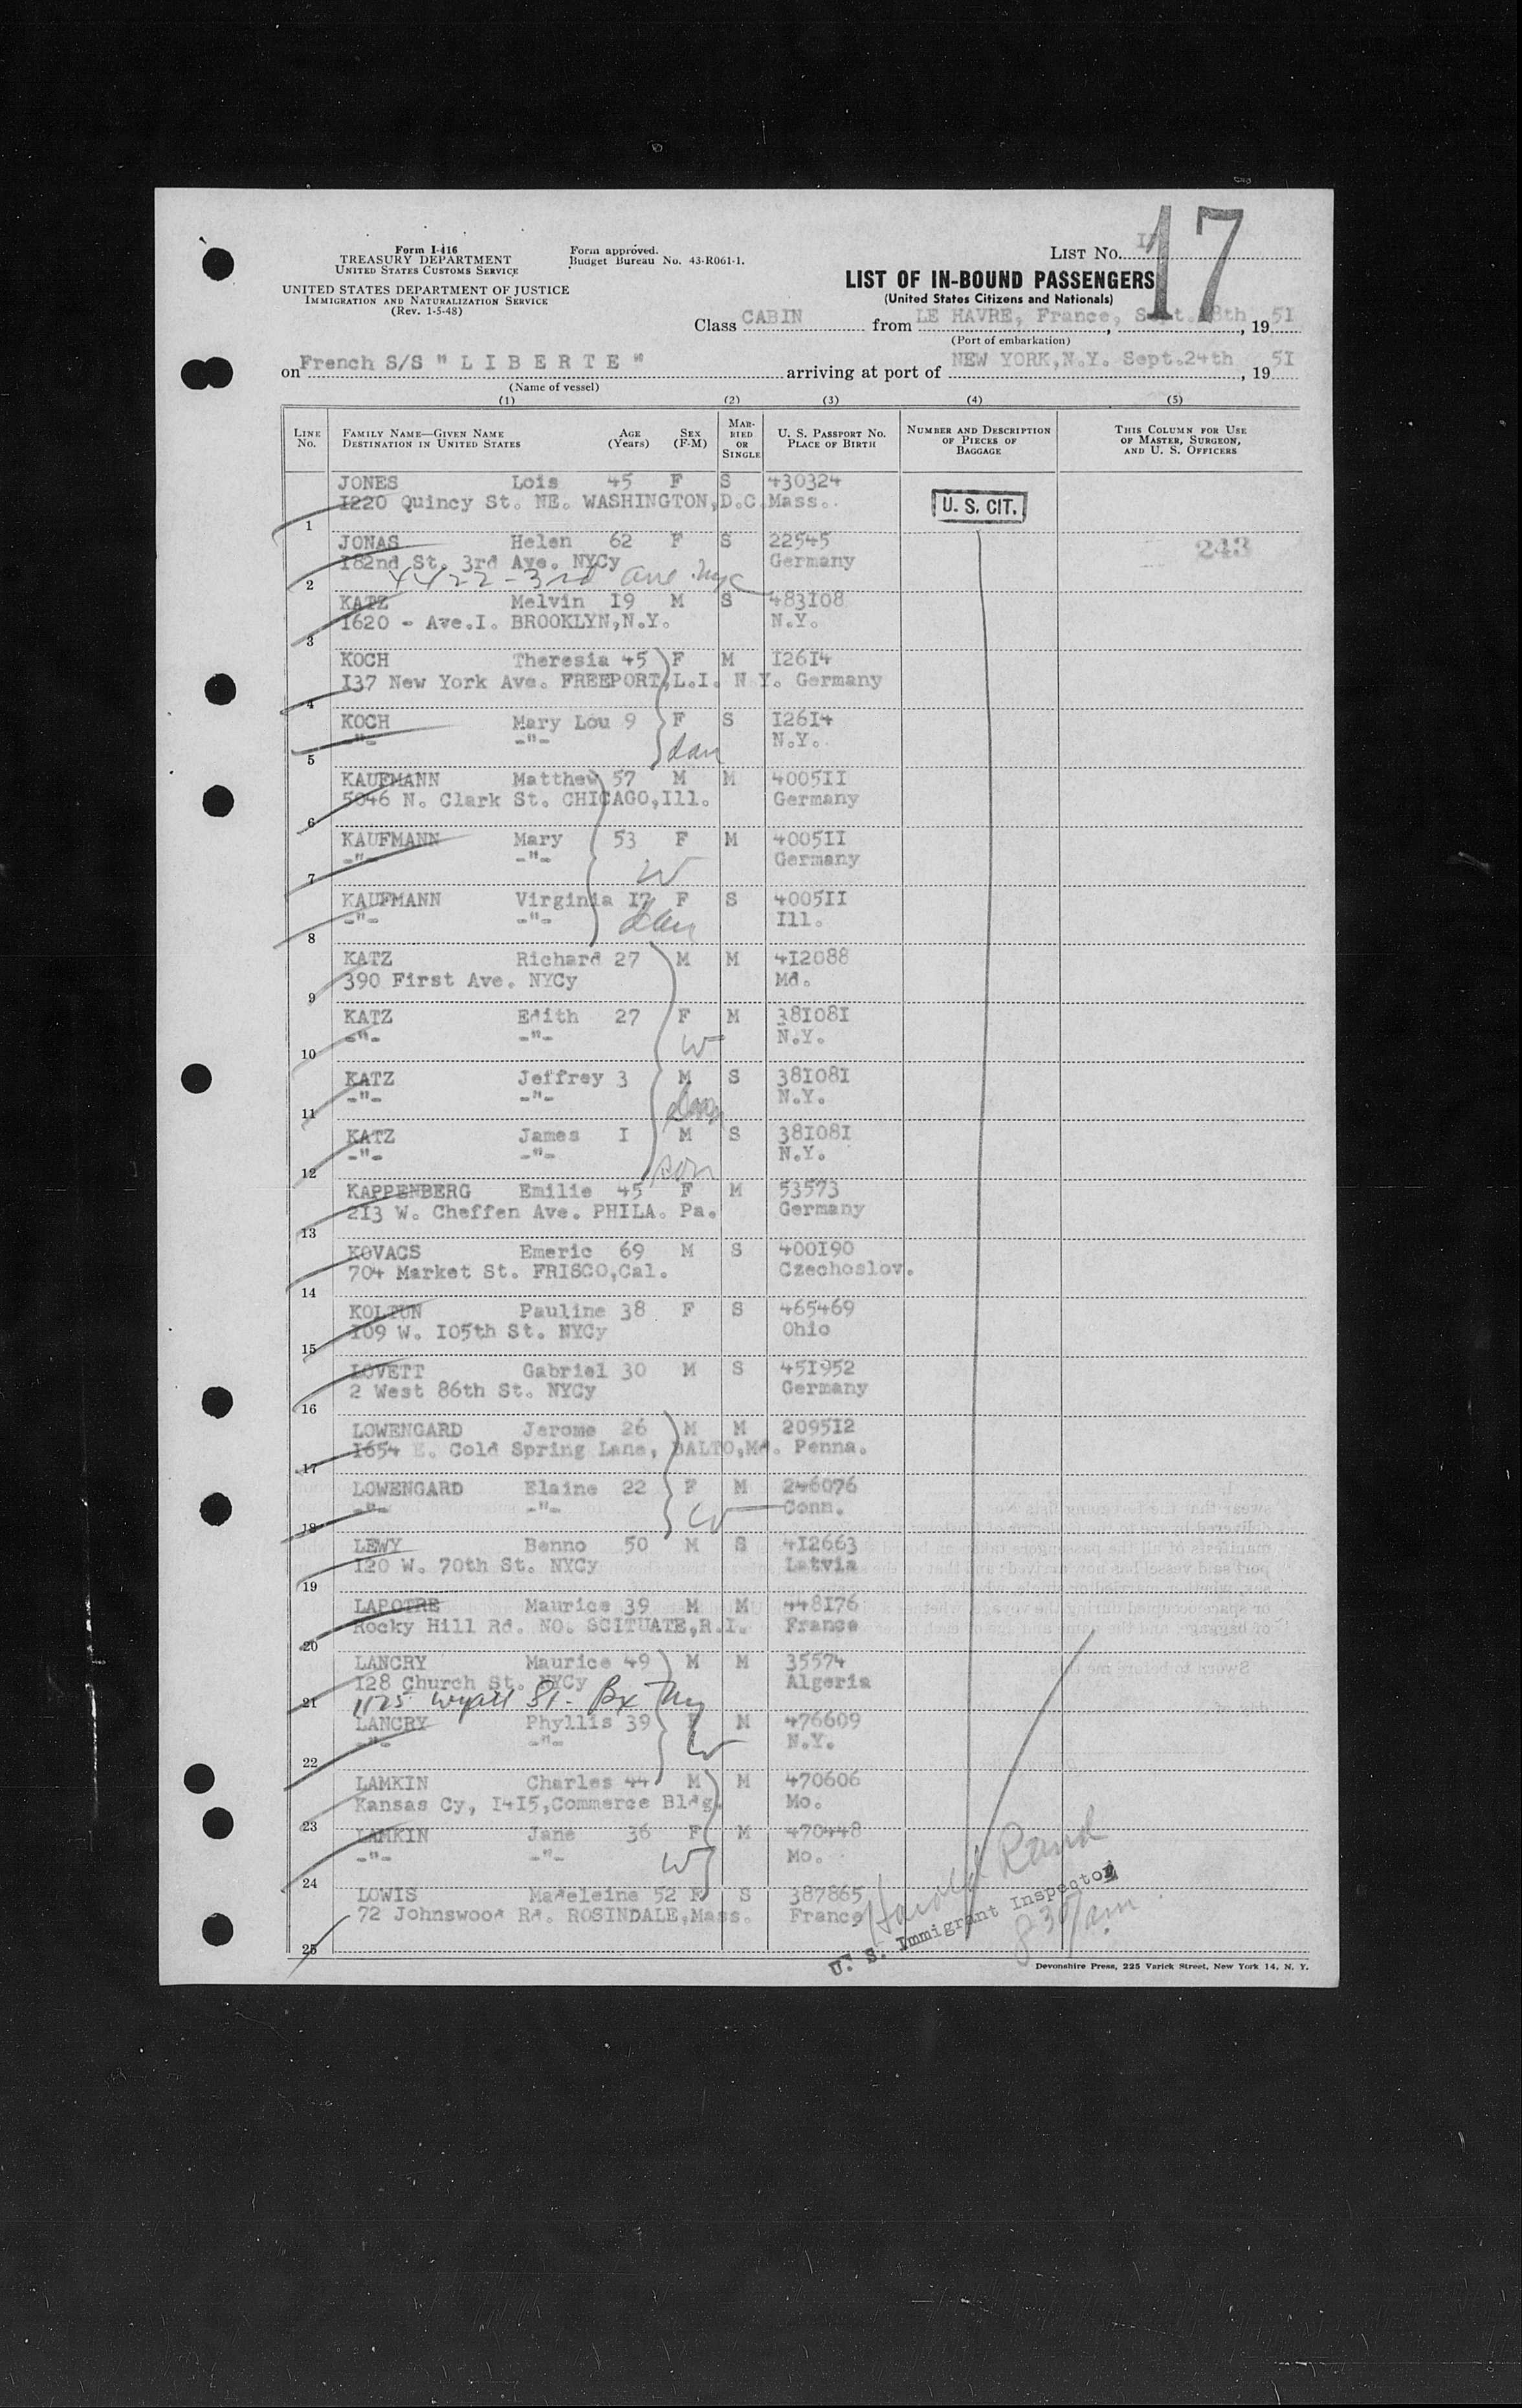 Form I-416
TREASURY DEPARTMENT
UNITED STATES CUSTOMS SERVICE
UNITED STATES DEPARTMENT OF JUSTICE
IMMIGRATION AND NATURALIZATION SERVICE
(Rev. 1-5-48)
Form approved.
Budget Bureau No. 43-R061-1.
LIST NO.
17
LIST OF IN-BOUND PASSENGERS
(United States Citizens and Nationals)
Class CABIN from LE HAVRE, France, Sept. 18th, 19 51
(Port of embarkation)
on French S/S " L I B E R T E " arriving at port of NEW YORK,N.Y. Sept.24th, 19 51
(Name of vessel)
(1) (2) (3) (4) (5)
LINE NO. FAMILY NAME—GIVEN NAME DESTINATION IN UNITED STATES AGE (Years) SEX (F-M) MARRIED OR SINGLE U. S. PASSPORT NO. PLACE OF BIRTH NUMBER AND DESCRIPTION OF PIECES OF BAGGAGE THIS COLUMN FOR USE OF MASTER, SURGEON, AND U. S. OFFICERS
JONES Lois 45 F S 430324
1 I220 Quincy St. NE. WASHINGTON,D.C. Mass. U. S. CIT.
JONAS Helen 62 F S 22545 243
I82nd St. 3rd Ave. NYCy Germany
2 4422 - 3rd Ave. nyc
KATZ Melvin I9 M S 483I08
3 I620 - Ave.I. BROOKLYN,N.Y. N.Y.
KOCH Theresia 45 F M I26I4
4 I37 New York Ave. FREEPORT,L.I. N.Y. Germany
KOCH Mary Lou 9 F S I26I4
5 -"- -"- dau N.Y.
KAUFMANN Matthew 57 M M 4005II
6 5046 N. Clark St. CHICAGO,Ill. Germany
KAUFMANN Mary 53 F M 4005II
7 -"- -"- W Germany
KAUFMANN Virginia I7 F S 4005II
8 -"- -"- dau Ill.
KATZ Richard 27 M M 4I2088
9 390 First Ave. NYCy Md.
KATZ Edith 27 F M 38I08I
10 -"- -"- W N.Y.
KATZ Jeffrey 3 M S 38I08I
11 -"- -"- N.Y.
KATZ James I M S 38I08I
12 -"- -"- son N.Y.
KAPPENBERG Emilie 45 F M 53573
13 2I3 W. Cheffen Ave. PHILA. Pa. Germany
KOVACS Emeric 69 M S 400I90
14 704 Market St. FRISCO,Cal. Czechoslov.
KOLTUN Pauline 38 F S 465469
15 I09 W. I05th St. NYCy Ohio
LOVETT Gabriel 30 M S 45I952
16 2 West 86th St. NYCy Germany
LOWENGARD Jerome 26 M M 2095I2
17 I654 E. Cold Spring Lane, BALTO,Md. Penna.
LOWENGARD Elaine 22 F M 246076
18 -"- -"- W Conn.
LEWY Benno 50 M S 4I2663
19 I20 W. 70th St. NYCy Latvia
LAPOTRE Maurice 39 M M 448I76
20 Rocky Hill Rd. NO. SCITUATE,R.I. France
LANCRY Maurice 49 M M 35574
I28 Church St. NYCy Algeria
21 1175 Wyatt St. Bx Ny
LANCRY Phyllis 39 F M 476609
22 -"- -"- W N.Y.
LAMKIN Charles 44 M M 470606
23 Kansas Cy, I4I5,Commerce Bldg. Mo.
LAMKIN Jane 36 F M 470448
24 -"- -"- W Mo.
LOWIS Madeleine 52 F S 387865
25 72 Johnswood Rd. ROSINDALE,Mass. France
Harold Rand
U. S. Immigrant Inspector
8 30/am
Devonshire Press, 225 Varick Street, New York 14, N. Y.